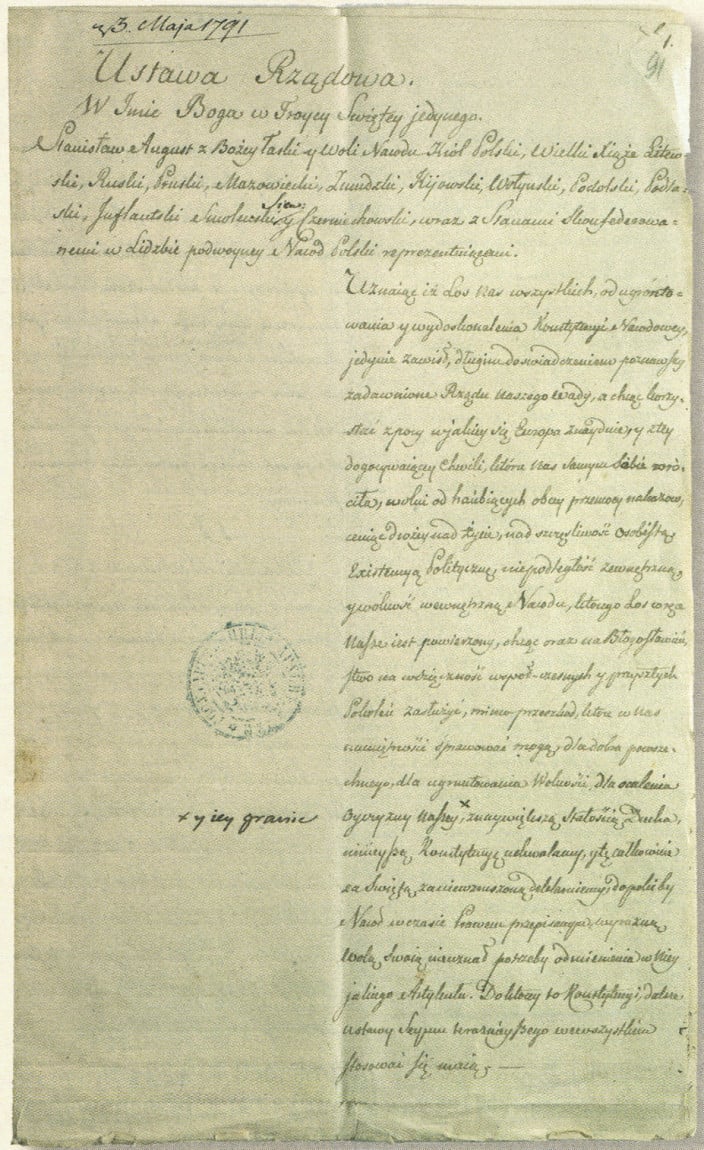 d 3. Maja 1791
1.
91
Ustawa Rządowa.
W Imie Boga w Troycy Swiętey jedynego.
Stanisław August z Bożey Łaski y Woli Narodu Król Polski, Wielki Xiąże Litew-
ski, Ruski, Pruski, Mazowiecki, Żmudzki, Kijowski, Wołynski, Podolski, Podla-
Siew:
ski, Inflantski Smolenski, y Czerniechowski, wraz z Stanami Skonfederowa-
nemi w Liczbie podwoyney Naród Polski reprezentuiącemi.
Uznaiąc iż Los nas wszystkich, od ugrunto-
wania y wydoskonalenia Konstytucyi Narodowey,
jedynie zawisł, długim doswiadczeniem poznawszy
zadawnione Rządu naszego wady, a chcąc korzy-
stać z pory w jakiey się Europa znayduie, y z tey
dogorywaiącey Chwili, która nas samym Sobie wró-
ciła, wolni od hańbiących obcey przemocy nakazow,
ceniąc drożey nad życie, nad szczęśliwość Osobistą
Existencyą Polityczną, niepodległość zewnętrzną
y wolność wewnętrzną Narodu, ktorego Los w ręce
nasze iest powierzony, chcąc oraz na Błogosławień-
stwo na wdzięczność wspoł-czesnych y przyszłych
Pokoleń zasłużyć, mimo przeszkod, ktore w nas
namiętności sprawować mogą, dla dobra powsze-
chnego, dla ugruntowania Wolności, dla ocalenia
Oyczyzny naszey, x z naywiększą stałością Ducha,
x y iey granic
ninieyszą Konstytucyę uchwalamy, y tę całkowicie
za Swiętą, za niewzruszoną deklaruiemy, dopoki by
Narod w czasie Prawem przepisanym, wyraźną
wolą Swoią nie uznał potrzeby odmienienia w niey
jakiego Artykułu. Do ktorey to Konstytucyi, dalsze
ustawy Seymu teraznieyszego we wszystkim
stosować się maią. —